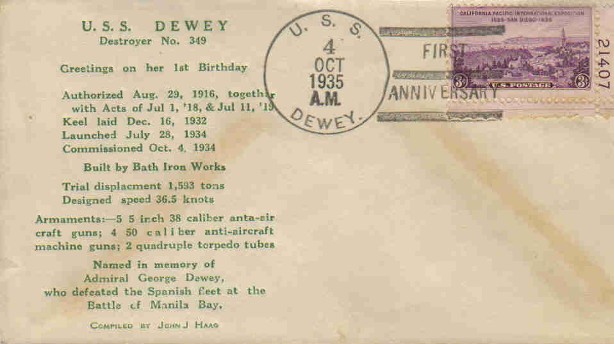 U. S. S. DEWEY
Destroyer No. 349
Greetings on her 1st Birthday
Authorized Aug. 29, 1916, together
with Acts of Jul 1, '18, & Jul 11, '19
Keel laid Dec. 16, 1932
Launched July 28, 1934
Commissioned Oct. 4, 1934
Built by Bath Iron Works
Trial displacment 1,593 tons
Designed speed 36.5 knots
Armaments:—5 5 inch 38 caliber anta-air
craft guns; 4 50 caliber anti-aircraft
machine guns; 2 quadruple torpedo tubes
Named in memory of
Admiral George Dewey,
who defeated the Spanish fleet at the
Battle of Manila Bay.
COMPILED BY JOHN J HAAG
U. S. S.
4
OCT
1935
A.M.
DEWEY.
FIRST
ANNIVERSARY
CALIFORNIA PACIFIC INTERNATIONAL EXPOSITION
1535-SAN DIEGO-1935
3¢ U.S. POSTAGE 3¢
21407